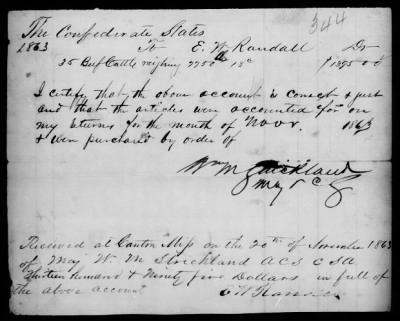 344
The Confederate States
1863 To E. W. Randall Dr
25 Beef Cattle weighing 7750 @ 18c $1395.00
I certify that the above account is correct & just
and that the articles were accounted for on
my returns for the month of Novr. 1863
& were purchased by order of
Wm M Strickland
Maj & C S
Received at Canton Miss on the 20th of November 1863
of Maj W. M Strickland A C S C S A
Thirteen Hundred & Ninety five Dollars in full of
the above account
E W Randall